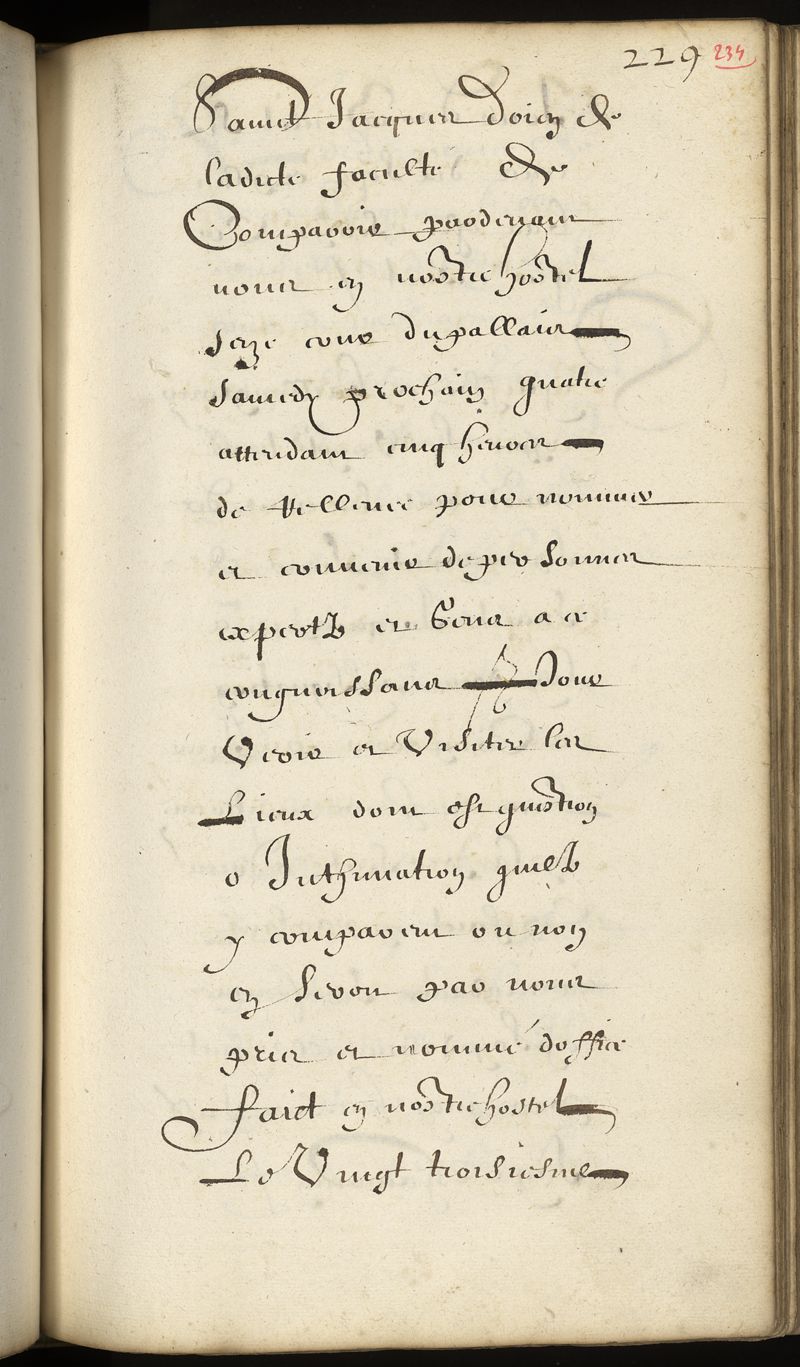 229 234
Sainct Jacques doien de
ladicte faculté de
Comparoir pardevant
nous en nostre hostel
size cour du pallais
samedy prochain quatre
attendant cinq heures
de rellevée pour nommer
et convenir de personnes
expertz et gens a ce
congnoissans pour
Veoir et Visiter les
Lieux dont est question
o Inthimation quilz
y comparent ou non
en seront par nous
pris et nommé doffice
faict en nostre hostel
Le Vingt troisiesme